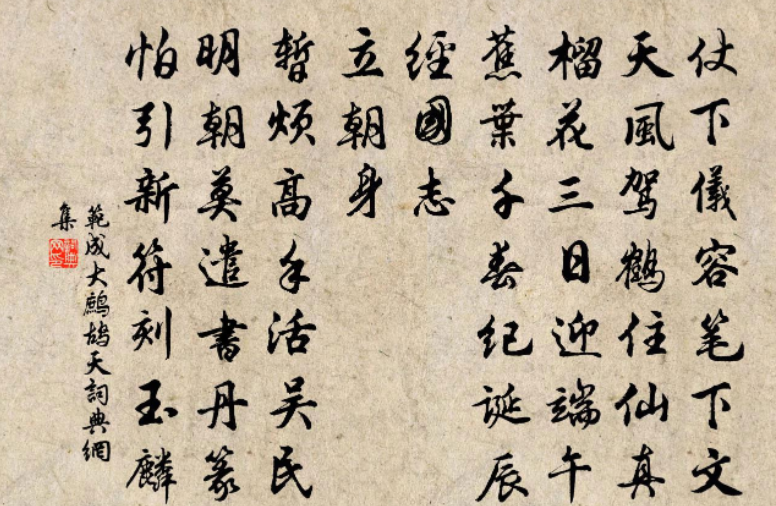 仗下儀容笔下文
天風駕鶴住仙真
榴花三日迎端午
蕉葉千春纪誕辰
經國志
立朝身
暫煩高手活吴民
明朝莫遣書丹篆
怕引新符刻玉麟
範成大鷓鴣天詞典網
集